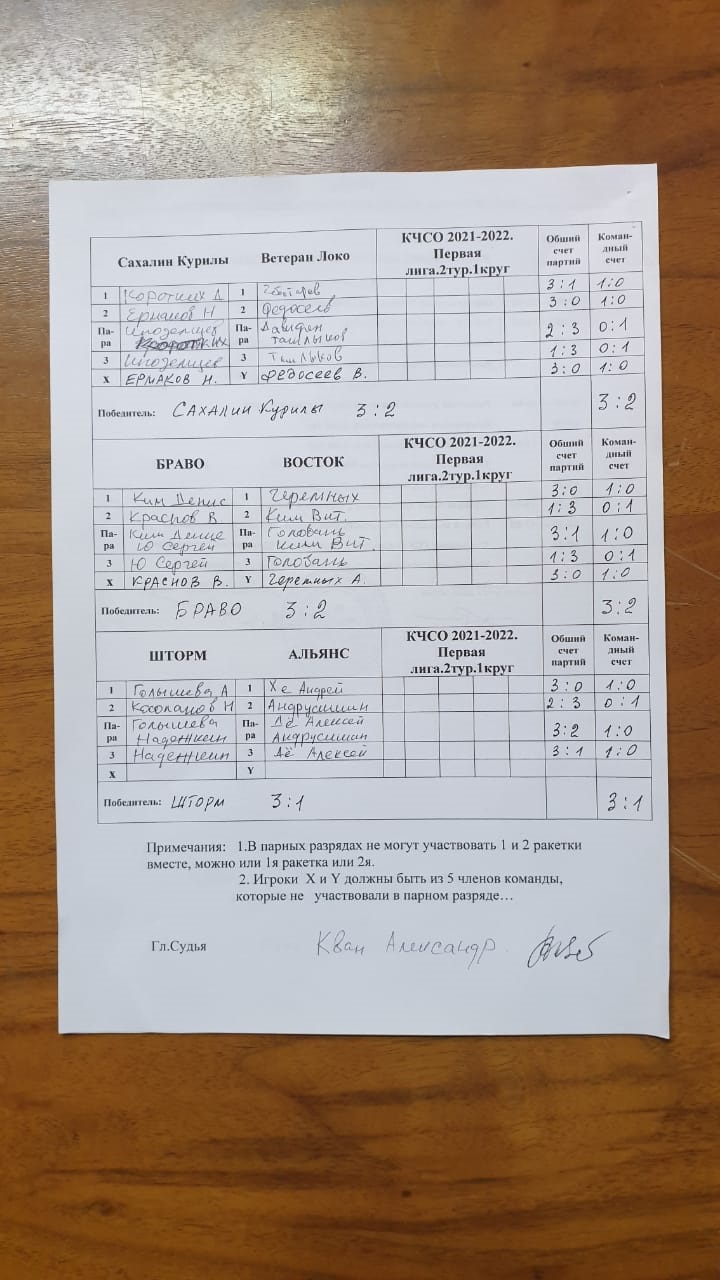 Сахалин Курилы Ветеран Локо КЧСО 2021-2022. Первая лига.2тур.1круг Обший счет партий Коман-дный счет
1 Коротких Д 1 3:1 1:0
2 Ермаков Н 2 Федосеев 3:0 1:0
Па-ра Иноземцев Па-ра 2:3 0:1
Коротких Ташлыков
3 Иноземцев 3 Ташлыков 1:3 0:1
X ЕРМАКОВ Н. Y ФЕДОСЕЕВ В. 3:0 1:0
Победитель: САХАЛИН Курилы 3:2 3:2
БРАВО ВОСТОК КЧСО 2021-2022. Первая лига.2тур.1круг Обший счет партий Коман-дный счет
1 Ким Денис 1 Черемных 3:0 1:0
2 Краснов В 2 Ким Вит. 1:3 0:1
Па-ра Ким Денис Па-ра Головань 3:1 1:0
Ю Сергей Ким Вит.
3 Ю Сергей 3 Головань 1:3 0:1
X КРАСНОВ В. Y Черемных А. 3:0 1:0
Победитель: БРАВО 3:2 3:2
ШТОРМ АЛЬЯНС КЧСО 2021-2022. Первая лига.2тур.1круг Обший счет партий Коман-дный счет
1 Голышева А 1 Хе Андрей 3:0 1:0
2 Косолапов Н 2 Андрусишин 2:3 0:1
Па-ра Голышева Па-ра Дё Алексей 3:2 1:0
Надежкин Андрусишин
3 Надежкин 3 Дё Алексей 3:1 1:0
X Y
Победитель: ШТОРМ 3:1 3:1
Примечания: 1.В парных разрядах не могут участвовать 1 и 2 ракетки
вместе, можно или 1я ракетка или 2я.
2. Игроки X и Y должны быть из 5 членов команды,
которые не участвовали в парном разряде…
Гл.Судья Кван Александр